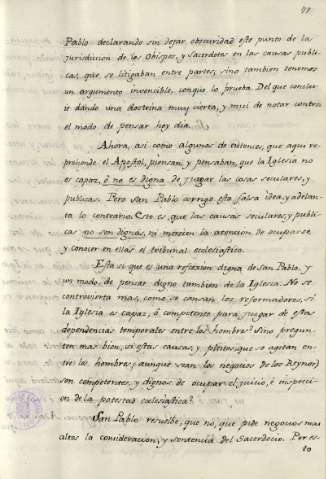 77.
Pablo declarando sin dejar obscuridad este punto de la
jurisdiccion de los Obispos, y Sacerdotes en las causas publi-
cas, que se litigaban entre partes, sino tambien tenemos
un argumento invencible, con que lo prueba. Del que conclui-
re dando una doctrina muy cierta, y mui de notar contra
el modo de pensar hoy dia.
Ahora, asi como algunos de entonces, que aqui re-
prehende el Apostol, piensan, y pensaban, que la Iglesia no
es capaz, ò no es digna de juzgar las cosas seculares, y
publicas. Pero San Pablo corrige esta falsa idea, y adelan-
ta lo contrario. Esto es, que las causas seculares, y publi-
cas no son dignas, ni merecen la atencion de ocuparse,
y conocer en ellas el tribunal eclesiastico.
Esta si que es una reflexion digna de San Pablo, y
un modo de pensar digno tambien de la Iglesia. No se
controvierta mas, como se cansan los reformadores, si
la Iglesia es capaz, ò competente para juzgar de estas
dependencias temporales entre los hombres? Sino pregun-
ten mas bien, si estas causas, y pleitos que se agitan en-
tre los hombres (aunque sean los negocios de los Reynos)
son competentes, y dignos de ocupar el juicio, è inspeccі-
on de la potestad eclesiastica?
San Pablo resuelbe, que no, que pide negocios mas
altos la consideracion, y sentencia del Sacerdocio. Por es-
to